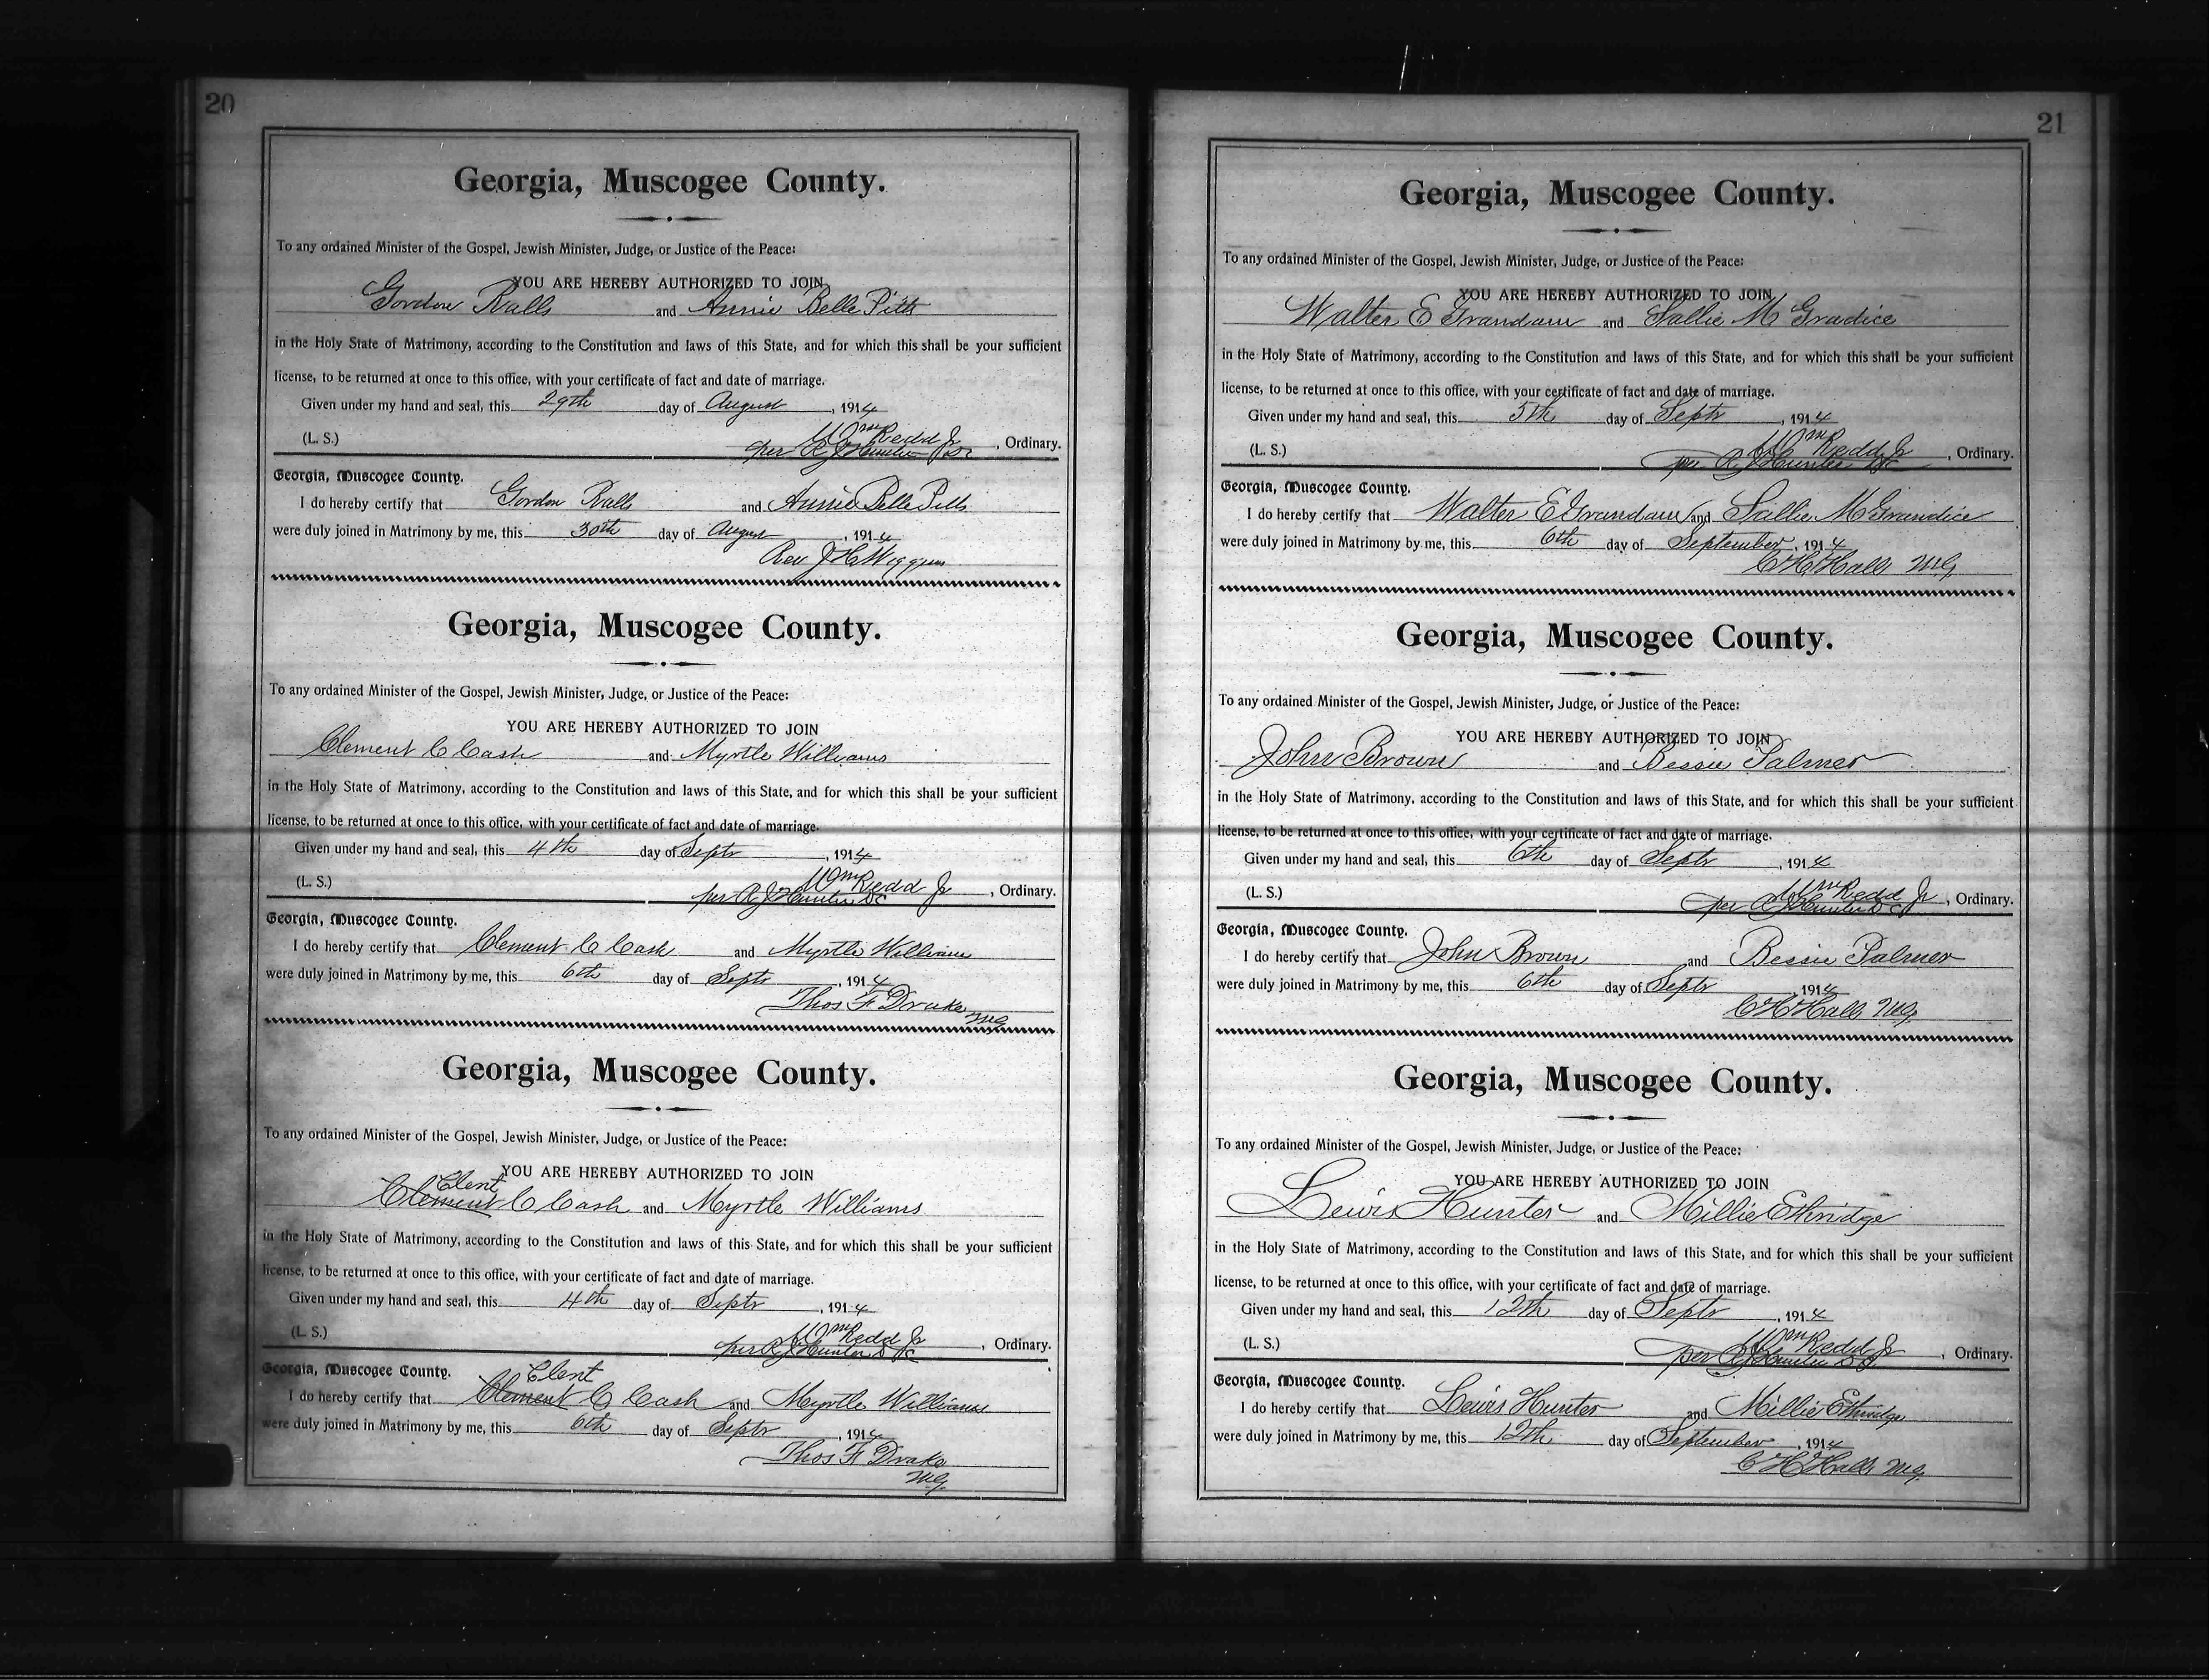 20
Georgia, Muscogee County.
To any ordained Minister of the Gospel, Jewish Minister, Judge, or Justice of the Peace:
YOU ARE HEREBY AUTHORIZED TO JOIN
Gordon Ralls and Annie Belle Pitts
in the Holy State of Matrimony, according to the Constitution and laws of this State, and for which this shall be your sufficient
license, to be returned at once to this office, with your certificate of fact and date of marriage.
Given under my hand and seal, this 29th day of August, 1914
(L. S.) Wm Redd Jr, Ordinary.
per R J Hunter
Georgia, Muscogee County.
I do hereby certify that Gordon Ralls and Annie Belle Pitts
were duly joined in Matrimony by me, this 30th day of August, 1914
Rev J H Wiggins
Georgia, Muscogee County.
To any ordained Minister of the Gospel, Jewish Minister, Judge, or Justice of the Peace:
YOU ARE HEREBY AUTHORIZED TO JOIN
Clement C Cash and Myrtle Williams
in the Holy State of Matrimony, according to the Constitution and laws of this State, and for which this shall be your sufficient
license, to be returned at once to this office, with your certificate of fact and date of marriage.
Given under my hand and seal, this 4th day of Septr, 1914
(L. S.) Wm Redd Jr, Ordinary.
per R J Hunter D C
Georgia, Muscogee County.
I do hereby certify that Clement C Cash and Myrtle Williams
were duly joined in Matrimony by me, this 6th day of Septr, 1914
Thos F Drake
M.G.
Georgia, Muscogee County.
To any ordained Minister of the Gospel, Jewish Minister, Judge, or Justice of the Peace:
YOU ARE HEREBY AUTHORIZED TO JOIN
Clent
Clement C Cash and Myrtle Williams
in the Holy State of Matrimony, according to the Constitution and laws of this State, and for which this shall be your sufficient
license, to be returned at once to this office, with your certificate of fact and date of marriage.
Given under my hand and seal, this 4th day of Septr, 1914
(L. S.) Wm Redd Jr, Ordinary.
per R J Hunter D C
Georgia, Muscogee County.
Clent
I do hereby certify that Clement C Cash and Myrtle Williams
were duly joined in Matrimony by me, this 6th day of Septr, 1914
Thos F Drake
M.G.
21
Georgia, Muscogee County.
To any ordained Minister of the Gospel, Jewish Minister, Judge, or Justice of the Peace:
YOU ARE HEREBY AUTHORIZED TO JOIN
Walter E Grandam and Sallie M Gradice
in the Holy State of Matrimony, according to the Constitution and laws of this State, and for which this shall be your sufficient
license, to be returned at once to this office, with your certificate of fact and date of marriage.
Given under my hand and seal, this 5th day of Septr, 1914
(L. S.) Wm Redd Jr, Ordinary.
per R J Hunter D C
Georgia, Muscogee County.
I do hereby certify that Walter E Grandam and Sallie M Grandice
were duly joined in Matrimony by me, this 6th day of September, 1914
C H Hall M.G.
Georgia, Muscogee County.
To any ordained Minister of the Gospel, Jewish Minister, Judge, or Justice of the Peace:
YOU ARE HEREBY AUTHORIZED TO JOIN
John Brown and Bessie Palmer
in the Holy State of Matrimony, according to the Constitution and laws of this State, and for which this shall be your sufficient
license, to be returned at once to this office, with your certificate of fact and date of marriage.
Given under my hand and seal, this 6th day of Septr, 1914
(L. S.) Wm Redd Jr, Ordinary.
per R J Hunter D C
Georgia, Muscogee County.
I do hereby certify that John Brown and Bessie Palmer
were duly joined in Matrimony by me, this 6th day of Septr, 1914
C H Hall M.G.
Georgia, Muscogee County.
To any ordained Minister of the Gospel, Jewish Minister, Judge, or Justice of the Peace:
YOU ARE HEREBY AUTHORIZED TO JOIN
Lewis Hunter and Millie Ethridge
in the Holy State of Matrimony, according to the Constitution and laws of this State, and for which this shall be your sufficient
license, to be returned at once to this office, with your certificate of fact and date of marriage.
Given under my hand and seal, this 12th day of Septr, 1914
(L. S.) Wm Redd Jr, Ordinary.
per R J Hunter D C
Georgia, Muscogee County.
I do hereby certify that Lewis Hunter and Millie Ethridge
were duly joined in Matrimony by me, this 12th day of September, 1914
C H Hall M.G.